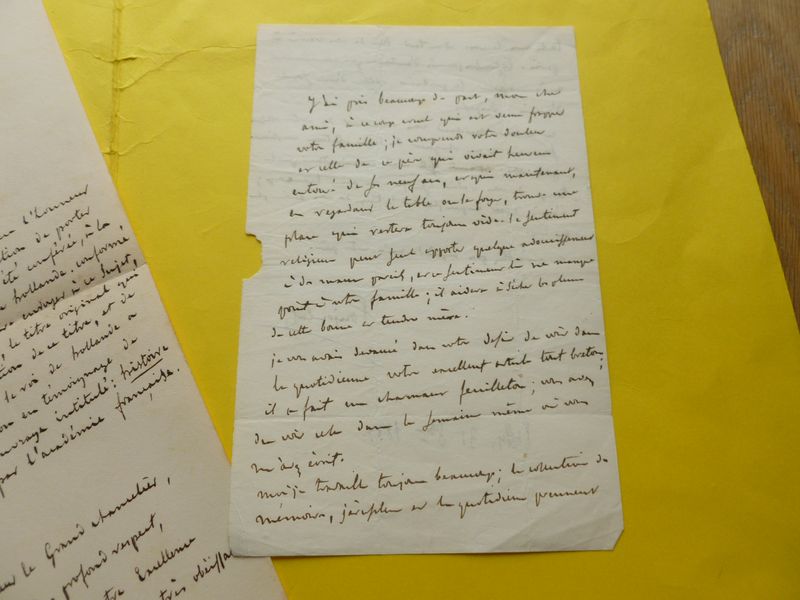 eur l'honneur
ation de porter
été conférée, à la
hollande. conformé
envoyer à ce sujet,
le titre original qui
tion de ce titre, et de
le roi de hollande a
en témoignage de
ouvrage intitulé: histoire
par l'académie française.
eur le Grand chancelier,
profond respect,
otre Excellence
très obéissa
J'ai pris beaucoup de part, mon cher
ami, à ce coup cruel qui est venu frapper
votre famille; je comprends votre douleur
et celle de ce père qui vivait heureux
entouré de ses neuf et qui maintenant,
en regardant la table ou le foyer, trouve une
place qui restera toujours vide. le sentiment
religieux peut seul apporter quelque adoucissement
à des maux pareils, et ce sentiment là ne manque
point à votre famille; il aidera à sécher les pleurs
de cette bonne et tendre mère.
je vous avais devancé dans votre désir de voir dans
la quotidienne votre excellent article tout breton,
il a fait un charmant feuilleton; vous avez
du voir cela dans la semaine même où vous
m'avez écrit.
moi je travaille toujours beaucoup; la collection de
mémoires, et la quotidienne prennent